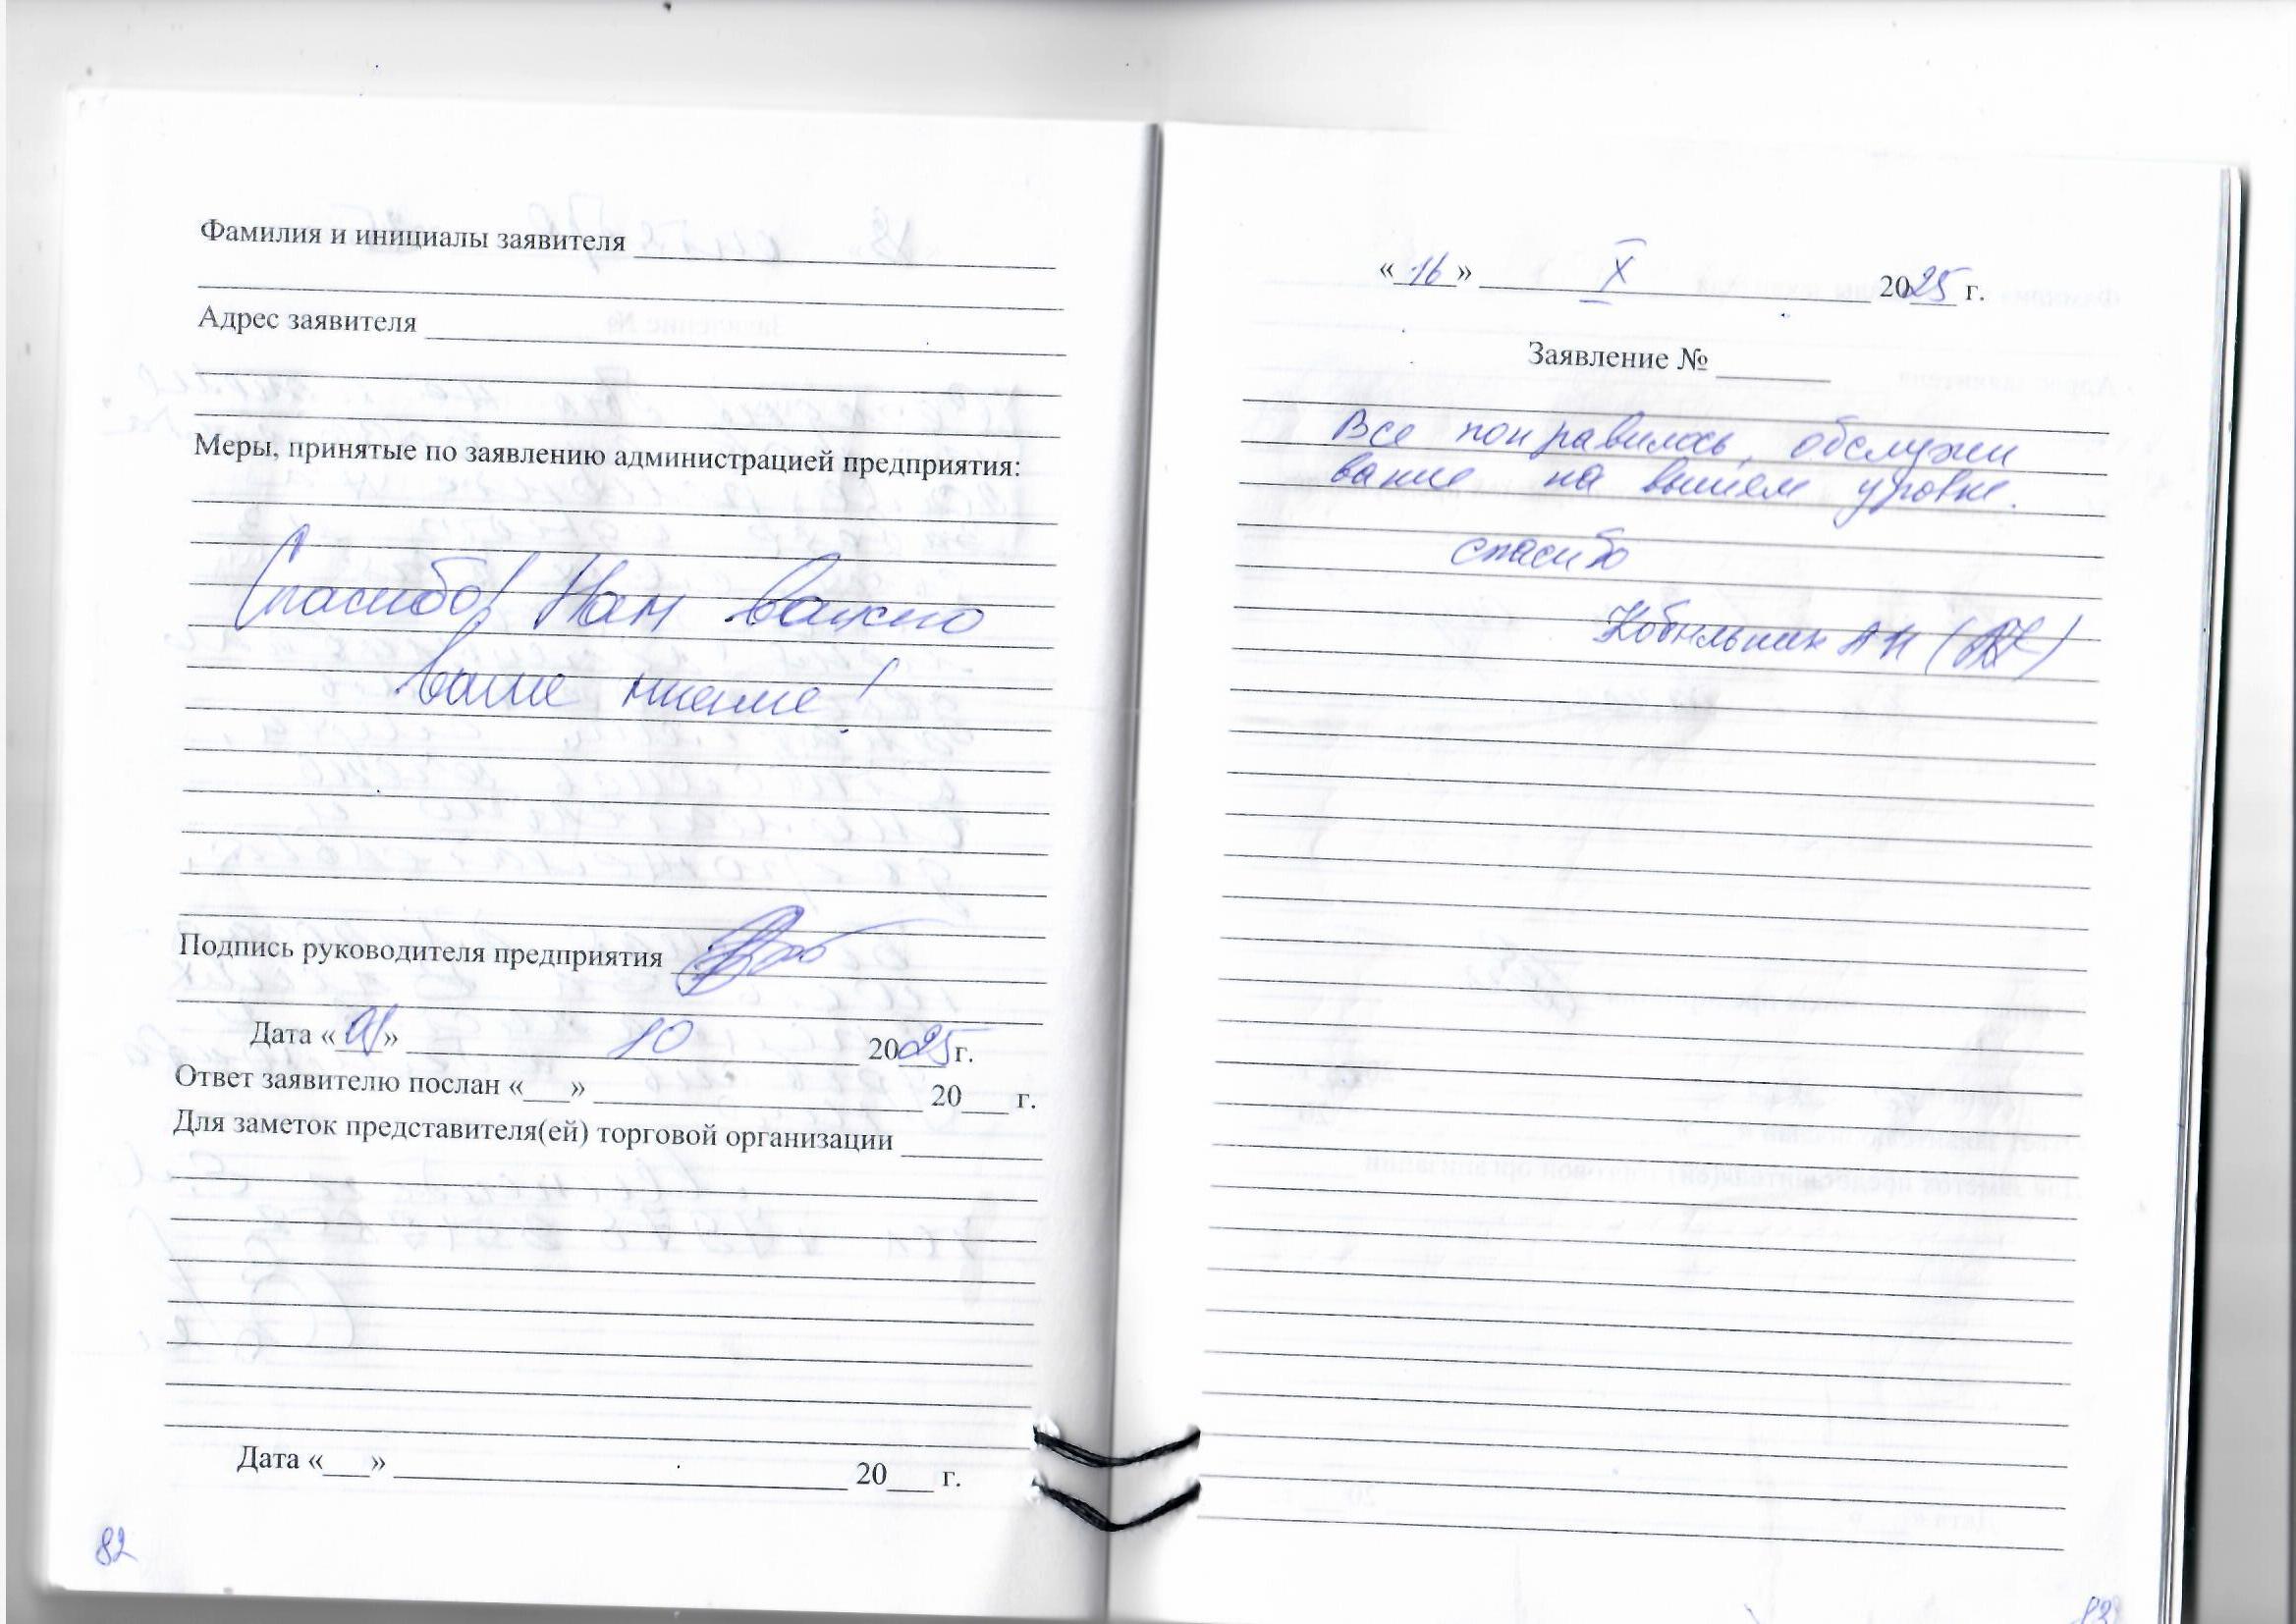 Фамилия и инициалы заявителя
Адрес заявителя
Меры, принятые по заявлению администрацией предприятия:
Спасибо! Нам важно
ваше мнение!
Подпись руководителя предприятия
Дата «01» 10 2025 г.
Ответ заявителю послан «___» 20___ г.
Для заметок представителя(ей) торговой организации
Дата «___» 20___ г.
82
«16» X 2025 г.
Заявление №
Все понравилось, обслужи
вание на вышем уровне.
спасибо
83